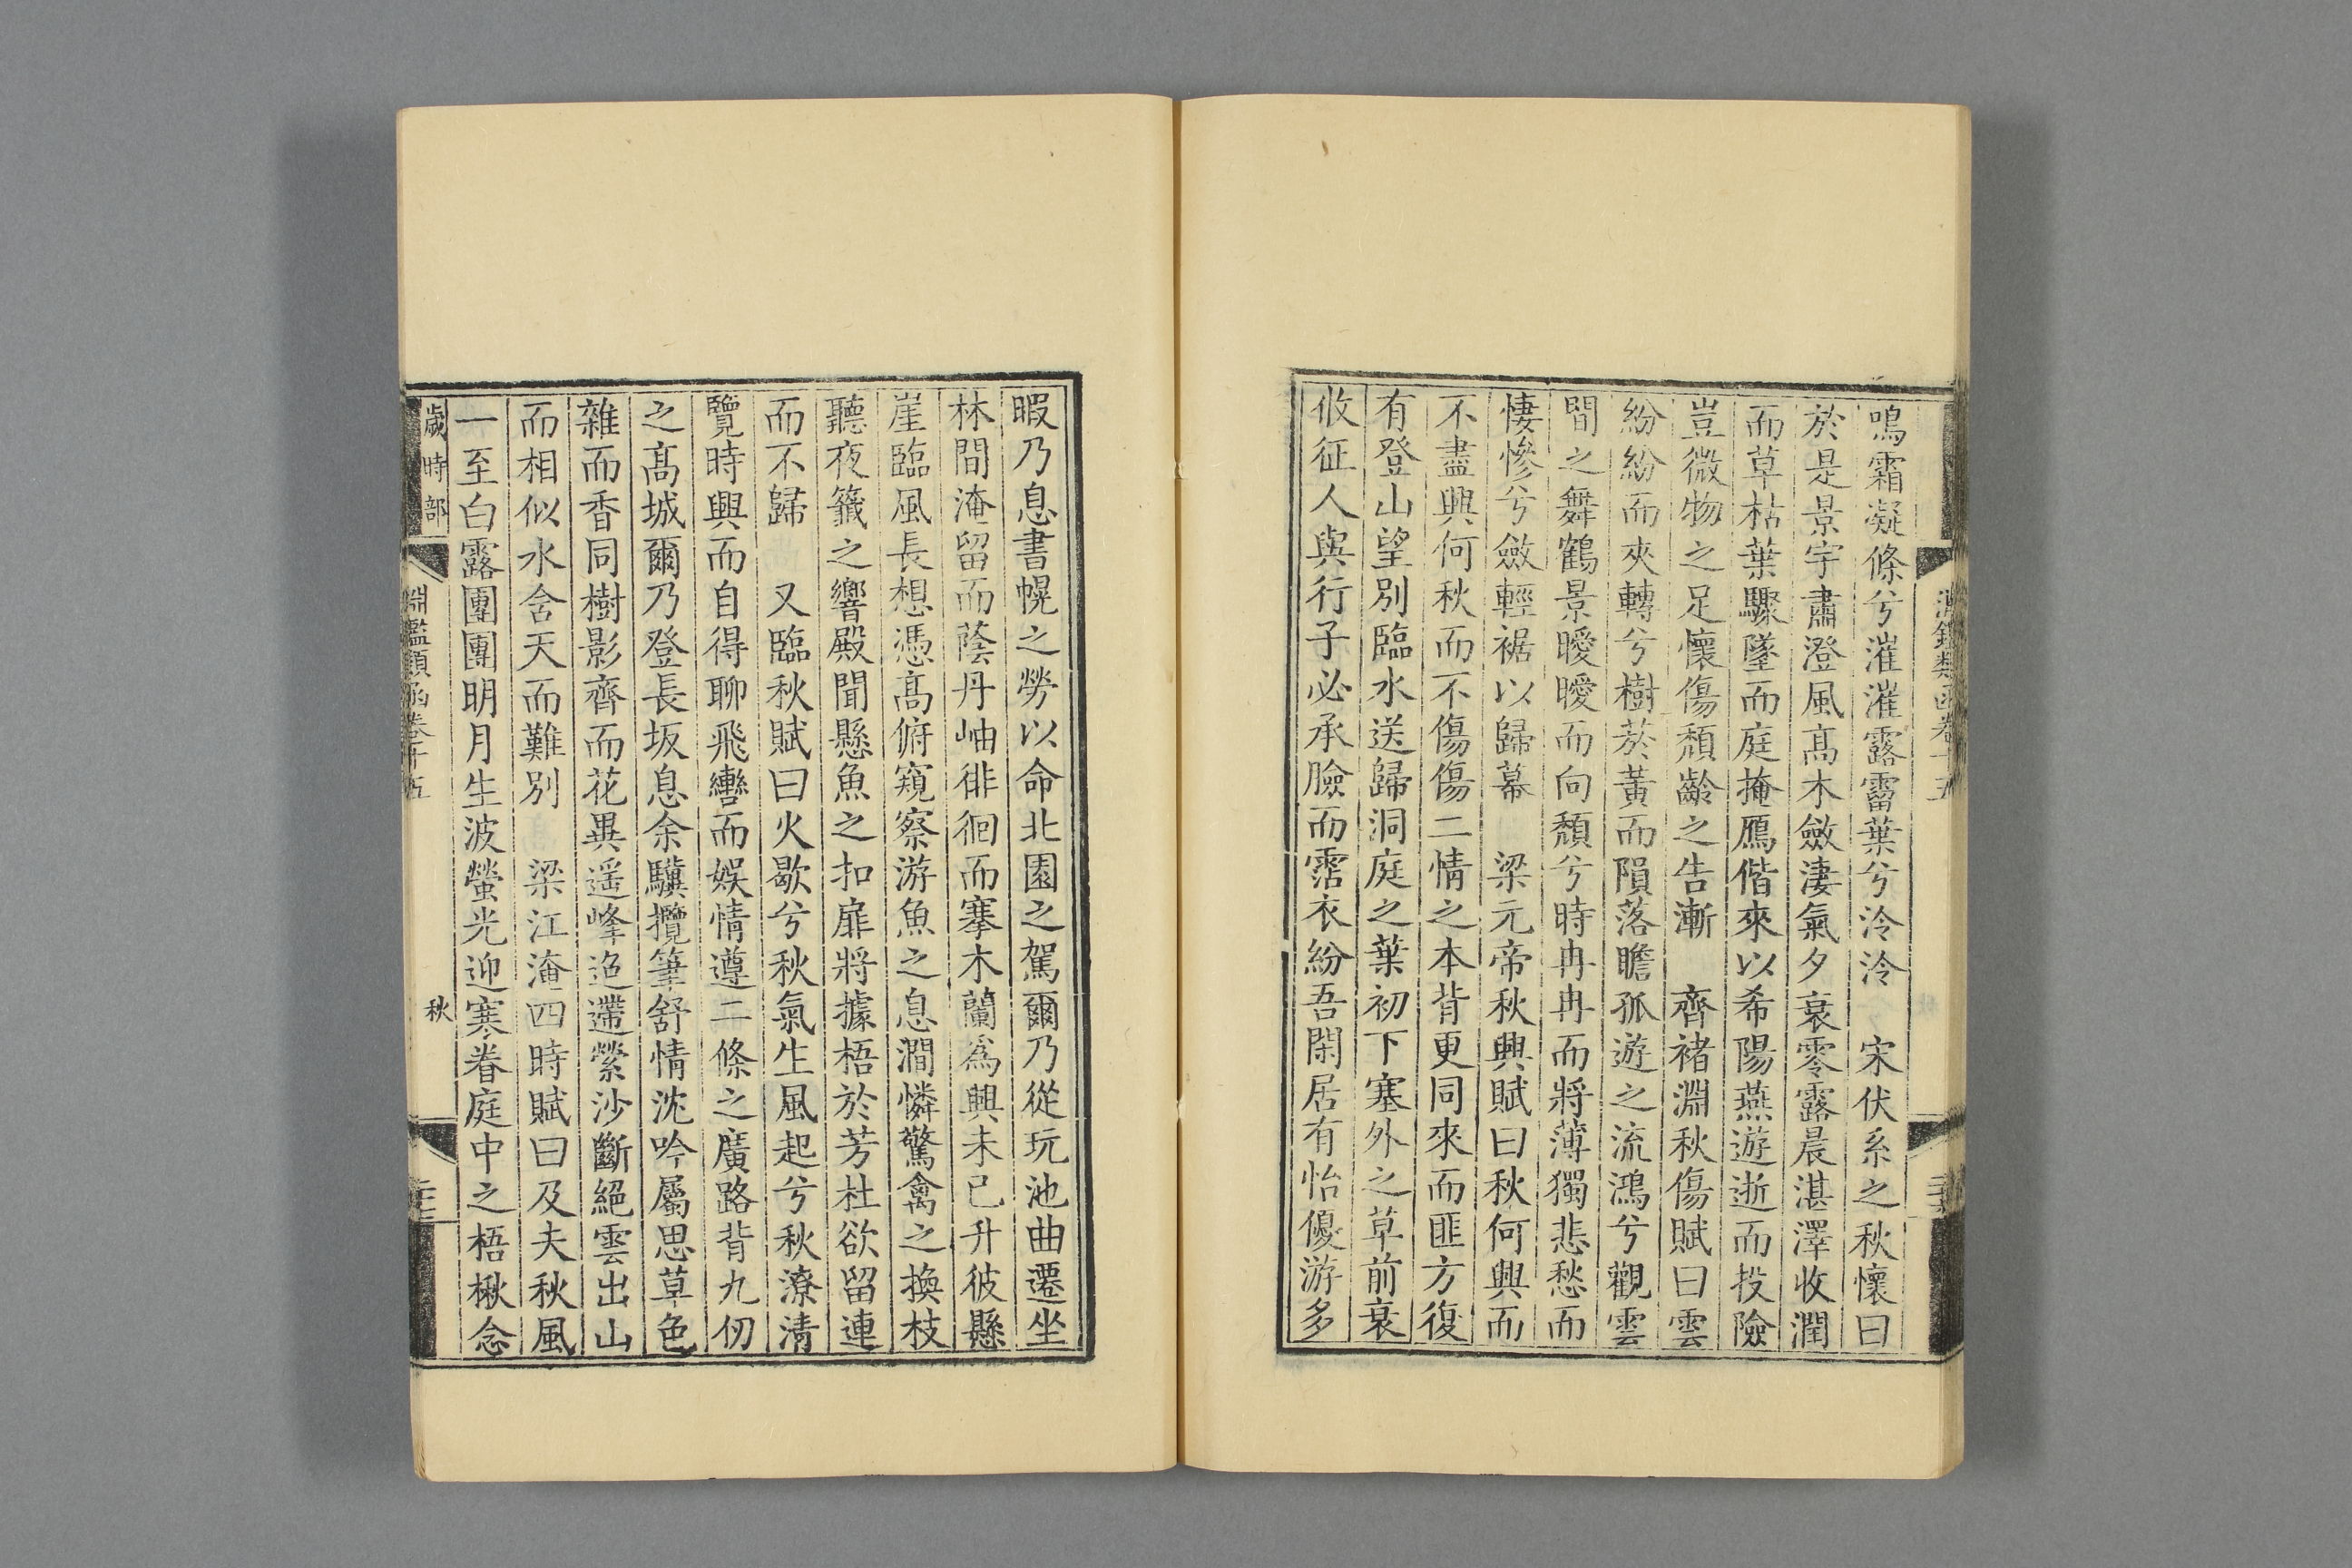 鳴霜凝條兮漼漼露霤葉兮泠泠　宋伏系之秋懷曰
於是景宇肅澄風髙木斂淒氣夕衰零露晨湛澤收潤
而草枯葉驟墜而庭掩鴈偕來以希陽燕遊逝而投險
豈微物之足懷傷頽齡之告漸　齊褚淵秋傷賦曰雲
紛紛而夾轉兮樹菸黃而隕落瞻孤遊之流鴻兮觀雲
間之舞鶴景曖曖而向頽兮時冉冉而將薄獨悲愁而
悽慘兮斂輕裾以歸幕　梁元帝秋興賦曰秋何興而
不盡興何秋而不傷傷二情之本背更同來而匪方復
有登山望別臨水送歸洞庭之葉初下塞外之草前衰
攸征人與行子必承臉而霑衣紛吾閑居有怡優游多
暇乃息書幌之勞以命北園之駕爾乃從玩池曲遷坐
林間淹留而蔭丹岫徘徊而搴木蘭為興未已升彼懸
崖臨風長想憑髙俯窺察游魚之息澗憐驚禽之換枝
聽夜籤之響殿聞懸魚之扣扉將據梧於芳杜欲留連
而不歸　又臨秋賦曰火歇兮秋氣生風起兮秋潦清
覽時興而自得聊飛轡而娛情遵二條之廣路背九仞
之髙城爾乃登長坂息余驥攬筆舒情沈吟屬思草色
雜而香同樹影齊而花異遥峰迢遰縈沙斷絕雲出山
而相似水含天而難別　梁江淹四時賦曰及夫秋風
一至白露團團明月生波螢光迎寒眷庭中之梧楸念
歲時部　淵鑑類函卷十五　秋